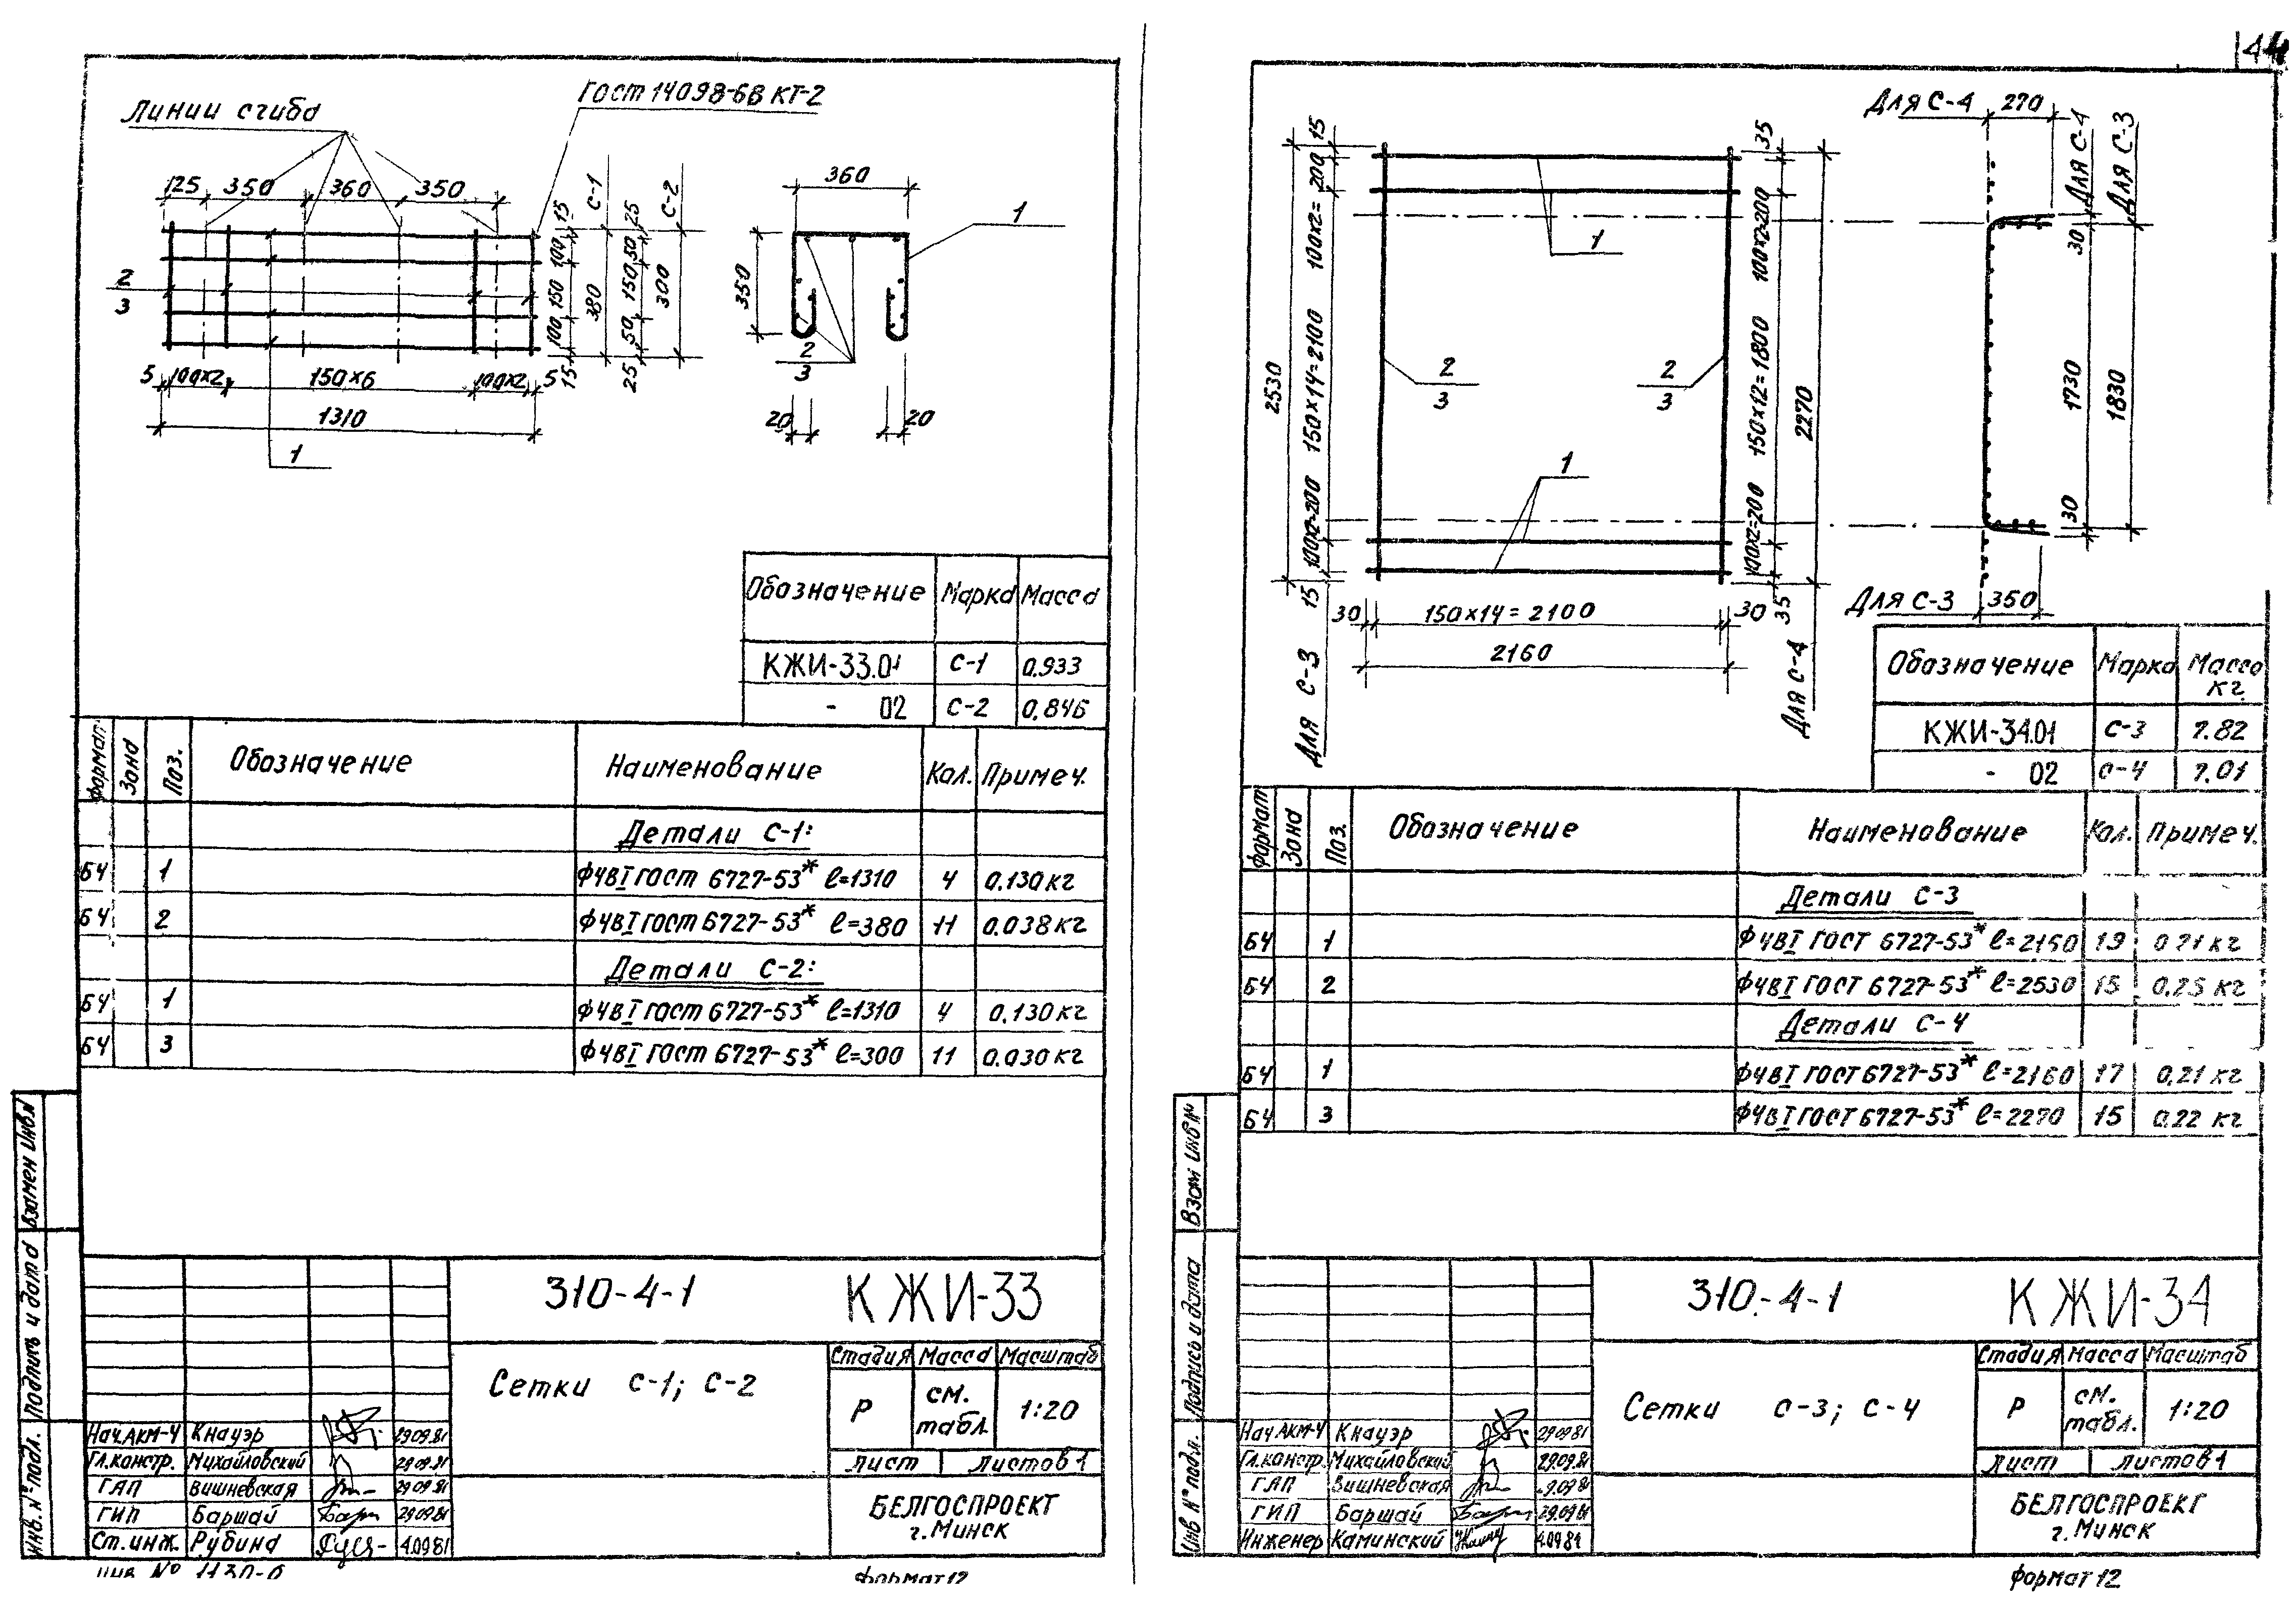 44
Линии сгиба
ГОСТ 14098-68 КТ-2
125 350 360 350
15 100 150 100 15
С-1
380
25 50 150 50 25
С-2
300
2
3
5 100х2 150х6 100х2 5
1310
1
360
1
350
2
3
20 20
Обозначение Марка Масса
КЖИ-33.01 С-1 0.933
- 02 С-2 0.846
Формат Зона Поз. Обозначение Наименование Кол. Примеч.
Детали С-1:
БЧ 1 Ф4ВI ГОСТ 6727-53* ℓ=1310 4 0.130 кг
БЧ 2 Ф4ВI ГОСТ 6727-53* ℓ=380 11 0.038 кг
Детали С-2:
БЧ 1 Ф4ВI ГОСТ 6727-53* ℓ=1310 4 0.130 кг
БЧ 3 Ф4ВI ГОСТ 6727-53* ℓ=300 11 0.030 кг
Взамен Инв.№
Подпись и дата
Инв.№ подл.
310-4-1 КЖИ-33
Сетки С-1; С-2
Стадия Масса Масштаб
Р см. табл. 1:20
Лист Листов 1
БЕЛГОСПРОЕКТ
г. Минск
Нач.АКМ-4 Кнауэр 29.09.81
Гл.констр. Михайловский 29.09.81
ГАП Вишневская 29.09.81
ГИП Баршай 29.09.81
Ст.инж. Рубина 4.09.81
инв № 1130-6
Формат 12
2530
15
100х2=200
150х14=2100
100х2=200
15
Для С-3
35
100х2=200
150х12=1800
100х2=200
35
2270
Для С-4
1
2
3
2
3
1
30 150х14=2100 30
2160
Для С-4 270
Для С-4
Для С-3
30
1730
1830
30
Для С-3 350
Обозначение Марка Масса кг
КЖИ-34.01 С-3 7.82
- 02 С-4 7.01
Формат Зона Поз. Обозначение Наименование Кол. Примеч.
Детали С-3
БЧ 1 Ф4ВI ГОСТ 6727-53* ℓ=2160 19 0.21 кг
БЧ 2 Ф4ВI ГОСТ 6727-53* ℓ=2530 15 0.25 кг
Детали С-4
БЧ 1 Ф4ВI ГОСТ 6727-53* ℓ=2160 17 0.21 кг
БЧ 3 Ф4ВI ГОСТ 6727-53* ℓ=2270 15 0.22 кг
Взам Инв №
Подпись и дата
Инв № подл.
310-4-1 КЖИ-34
Сетки С-3; С-4
Стадия Масса Масштаб
Р см. табл. 1:20
Лист Листов 1
БЕЛГОСПРОЕКТ
г. Минск
Нач АКМ-4 Кнауэр 29.09.81
Гл.констр. Михайловский 29.09.81
ГАП Вишневская 9.09.81
ГИП Баршай 29.09.81
Инженер Каминский 4.09.81
Формат 12